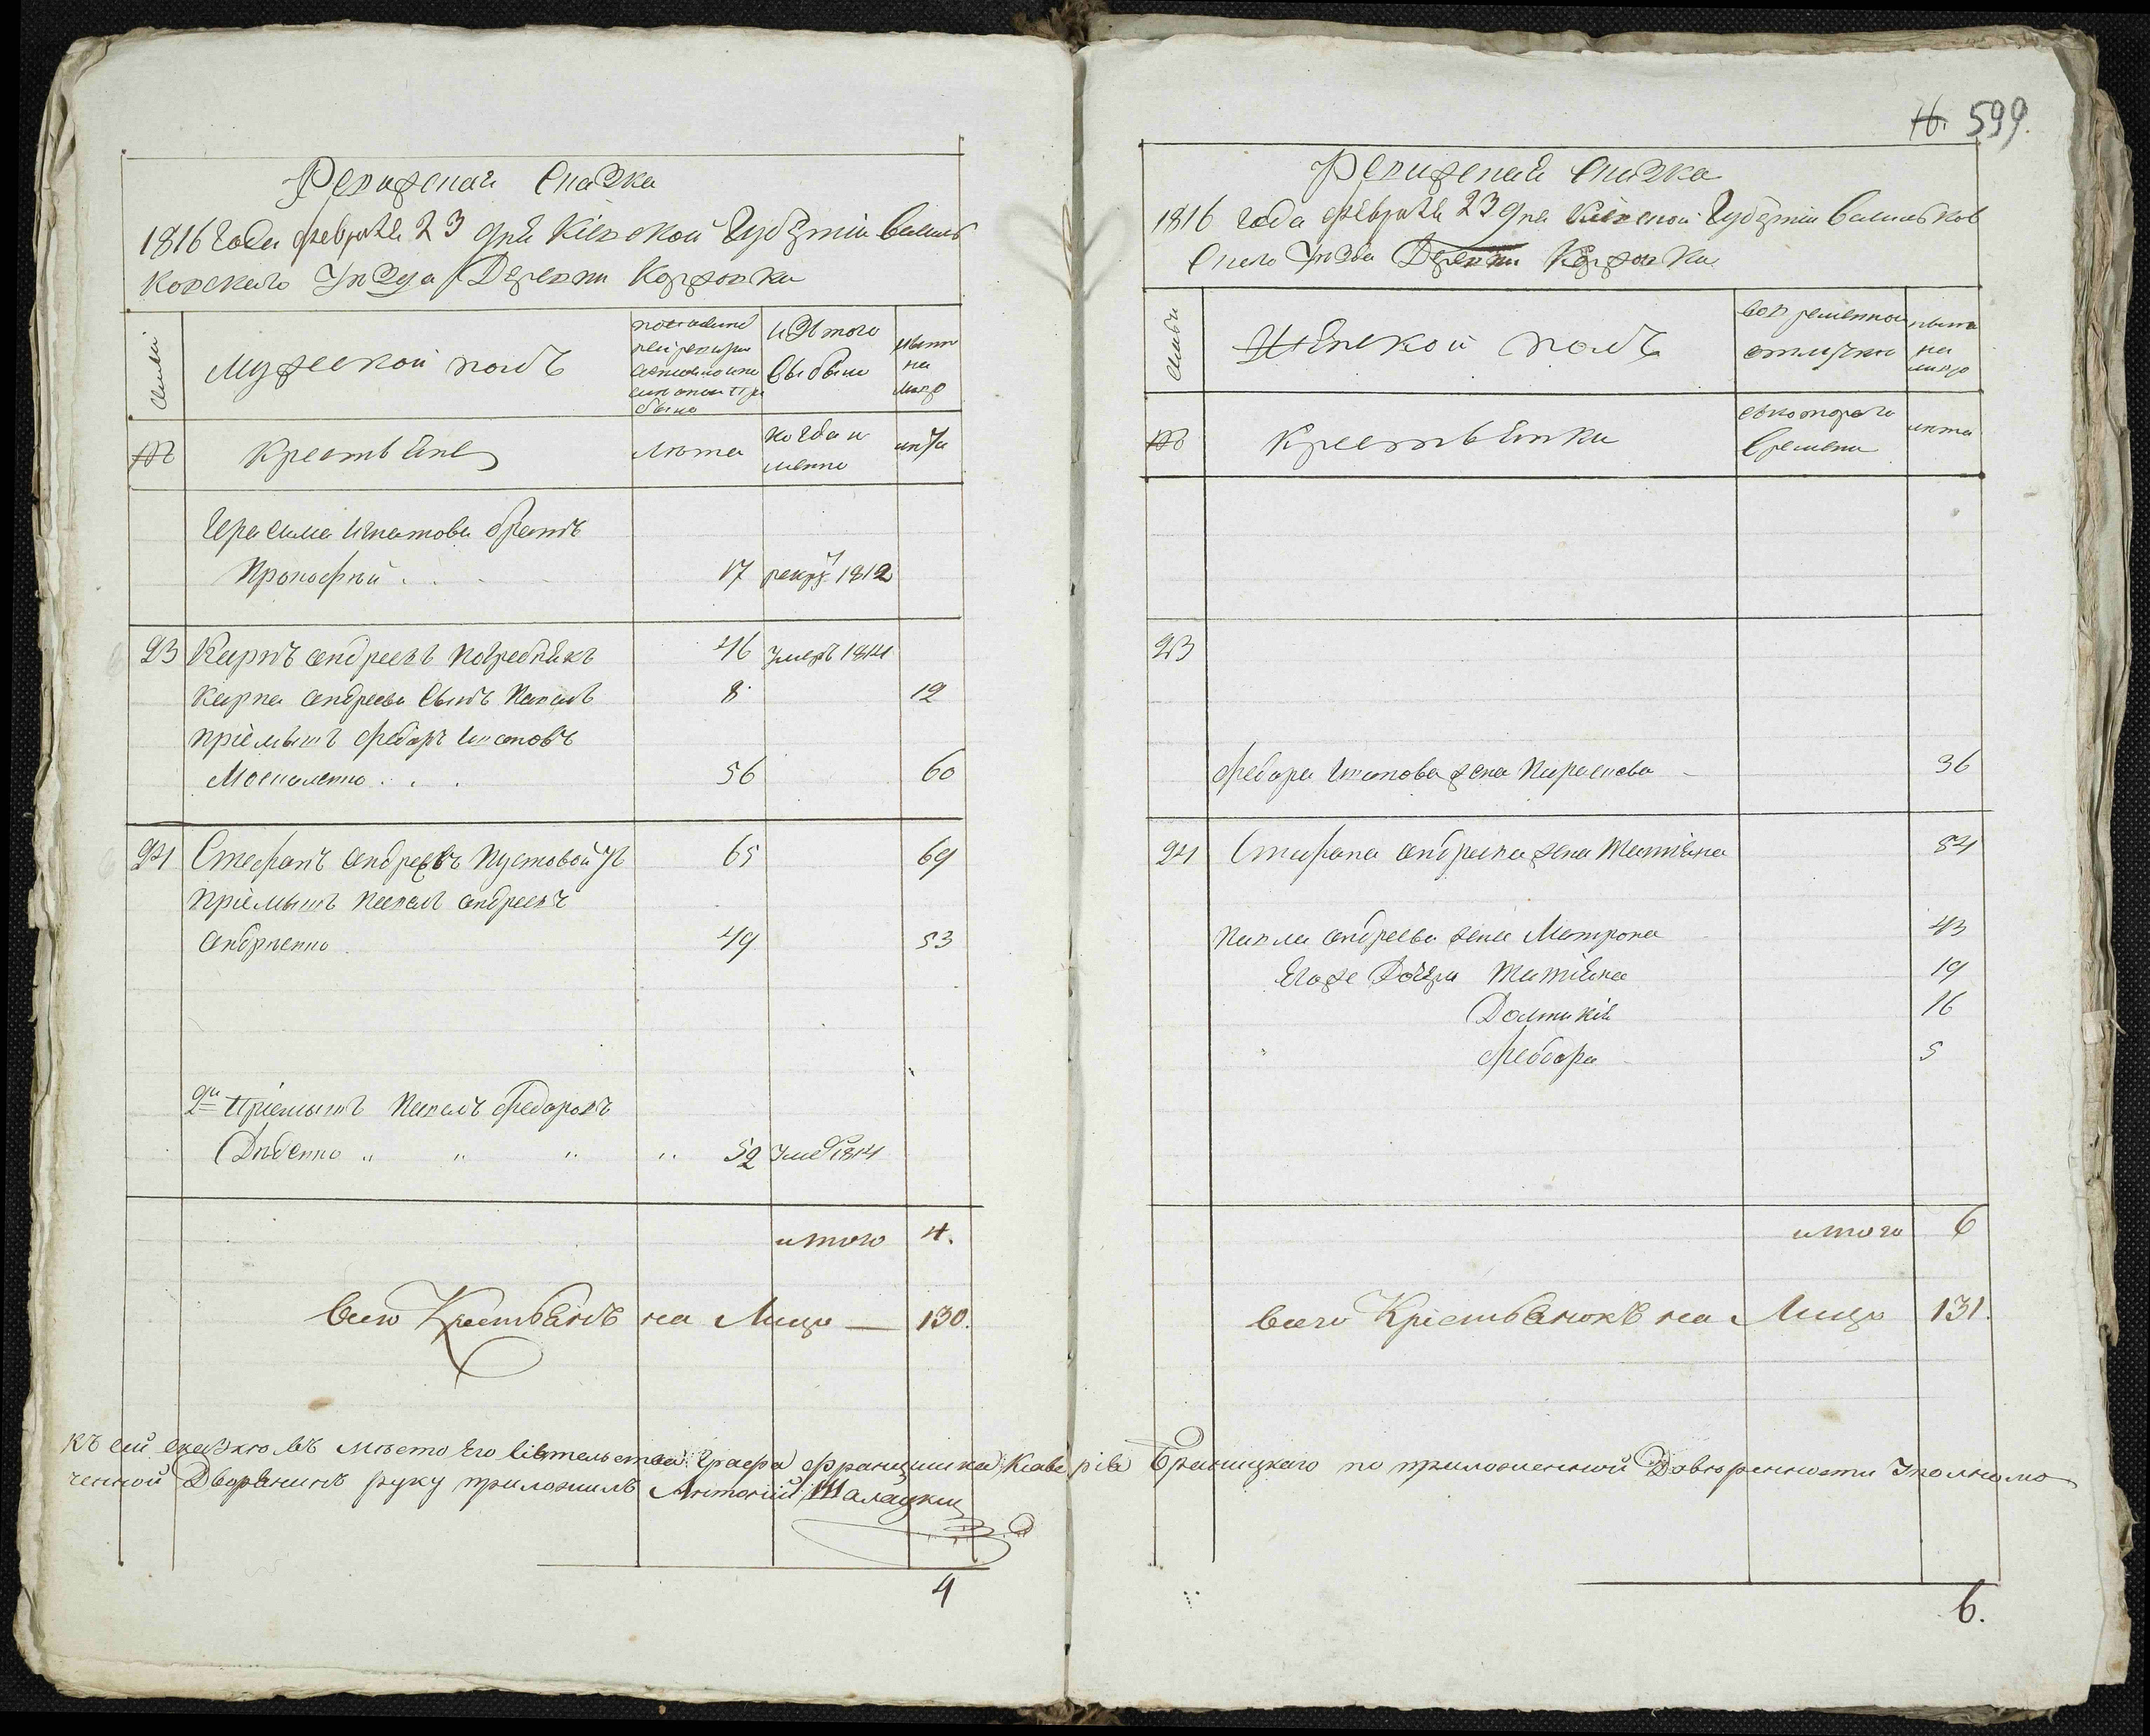 Ревизская Сказка
1816 Года февраля 23 дня Кіевской Губерніи Василь
ковскаго Уезда Деревни Коржовки
Семьи
Мужеской полъ
по последней ревизіи состояло и после оной прибыло
Изъ того выбыло
ныне на лицо
№ Крестьяне Лета когда именно лета
Герасима Игнатова братъ
Прокофий . . 17 рекру 1812
23 Карпъ Андреевъ Погребнякъ 46 умеръ 1814
Карпа Андреева Сынъ Павелъ 8 12
Пріемышъ Федоръ Игнатовъ
Москаленко . . . 56 60
24 Стефанъ Андреевъ Пустовойтъ 65 69
Пріемышъ Павелъ Андреевъ
Андриенко 49 53
2й Пріемышъ Павелъ Федоровъ
Диденко „ „ „ „ 52 Умер 1814
итого 4.
Всего Крестьянъ на Лицо — 130.
4
16. 599.
Ревизская Сказка
1816 Года февраля 23 дня Кіевской Губерніи Васильков
скаго Уезда Деревни Коржовки
Семьи
Женской полъ
во временной отлучке
ныне на лицо
№ Крестьянки съ котораго времени лета
23
Федора Игнатова жена Параскова 36
24 Стефана Андреева жена Татіяна 84
Павла Андреева жена Матрона 43
Егоже Дочери Татіяна 19
Домникія 16
Феодора 5
итого 6
всего Крістьянокъ на Лицо 131.
къ сей сказкю въ место Его Сіятельства Графа Францишка Ксаверіея Браницкаго по приложенной Доверенности Уполномо
ченной Дворянинъ руку приложилъ Антоній
6.